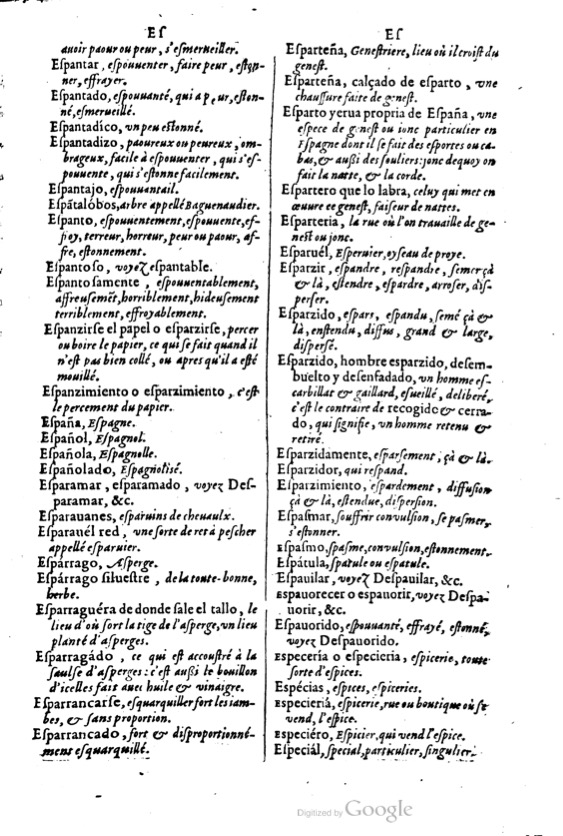 Eſ
auoir paour ou peur, s'eſmerueiller.
Eſpantar, eſpouuenter, faire peur, eſton-
ner, effrayer.
Eſpantado, eſpouuanté, qui a peur, eſton-
né, eſmerueillé.
Eſpantadíco, vn peu eſtonné.
Eſpantadizo, paoureux ou peureux, om-
brageux, facile à eſpouuenter, qui s'eſ-
pouuente, qui s'eſtonne facilement.
Eſpantajo, eſpouuantail.
Eſpãtalóbos, arbre appellé Baguenaudier.
Eſpanto, eſpouuentement, eſpouuente, ef-
froy, terreur, horreur, peur ou paour, af-
fre, eſtonnement.
Eſpantoſo, voyez eſpantable.
Eſpantoſamente, eſpouuentablement,
affreuſemẽt, horriblement, hideuſement
terriblement, effroyablement.
Eſpanzirſe el papel o eſparzirſe, percer
ou boire le papier, ce qui ſe fait quand il
n'eſt pas bien collé, ou apres qu'il a eſté
mouillé.
Eſpanzimiento o eſparzimiento, c'eſt
le percement du papier.
Eſpaña, Eſpagne.
Eſpañol, Eſpagnol.
Eſpañola, Eſpagnolle.
Eſpañolado, Eſpagnoliſé.
Eſparamar, eſparamado, voyez Deſ-
paramar, &c.
Eſparauanes, eſparuins de cheuaulx.
Eſparauél red, vne ſorte de ret à peſcher
appellé eſparuier.
Eſpárrago, Aſperge.
Eſpárrago ſilueſtre, de la toute-bonne,
herbe.
Eſparraguéra de donde ſale el tallo, le
lieu d'où ſort la tige de l'aſperge, vn lieu
planté d'aſperges.
Eſparragádo, ce qui eſt accouſtré à la
ſaulſe d'aſperges: c'eſt auſſi le bouillon
d'icelles fait auec huile & vinaigre.
Eſparrancarſe, eſquarquiller fort les iam-
bes, & ſans proportion.
Eſparrancado, fort & diſproportionné-
ment eſquarquillé.
Eſ
Eſparteña, Geneſtriere, lieu où il croiſt du
geneſt.
Eſparteña, calçado de eſparto, vne
chauſſure faite de geneſt.
Eſparto yerua propria de Eſpaña, vne
eſpece de geneſt ou ionc particulier en
Eſpagne dont il ſe fait des eſportes ou ca-
bas, & auſſi des ſouliers: ionc dequoy on
fait la natte, & la corde.
Eſpartero que lo labra, celuy qui met en
œuure ce geneſt, faiſeur de nattes.
Eſparteria, la rue où l'on trauaille de ge-
neſt ou ionc.
Eſparuél, Eſperuier, oyſeau de proye.
Eſparzit, eſpandre, reſpandre, ſemer çà
& là, eſtendre, eſpardre, arroſer, diſ-
perſer.
Eſparzido, eſpars, eſpandu, ſemé çà &
là, enſtendu, diffus, grand & large,
diſperſé.
Eſparzido, hombre esparzido, deſem-
buelto y deſenfadado, vn homme eſ-
carbillat & gaillard, eſueillé, deliberé,
c'eſt le contraire de recogido & cerra-
do, qui ſignifie, vn homme retenu &
retiré.
Eſparzidamente, eſparſement, çà & là.
Eſparzidor, qui reſpand.
Eſparzimiento, eſpardement, diffuſion
çà & là, eſtendue, diſperſion.
Eſpaſmar, ſouffrir convulſion, ſe paſmer,
s'eſtonner.
Eſpaſmo, ſpaſme, convulſion, eſtonnement.
Eſpátula, ſpatule ou eſpatule.
Eſpauilar, voyez Deſpauilar, &c.
Eſpauorecer o eſpauorir, voyez Deſpa-
uorir, &c.
Eſpauorido, eſpouuanté, effrayé, eſtonné,
voyez Deſpauorido.
Eſpecería o eſpecieria, eſpicerie, toute
ſorte d'eſpices.
Eſpécias, eſpices, eſpiceries.
Eſpeciería, eſpicerie, rue ou boutique où ſe
vend, l'eſpice.
Eſpeciéro, Eſpicier, qui vend l'eſpice.
Eſpeciál, ſpecial, particulier, ſingulier.
Digitized by Google